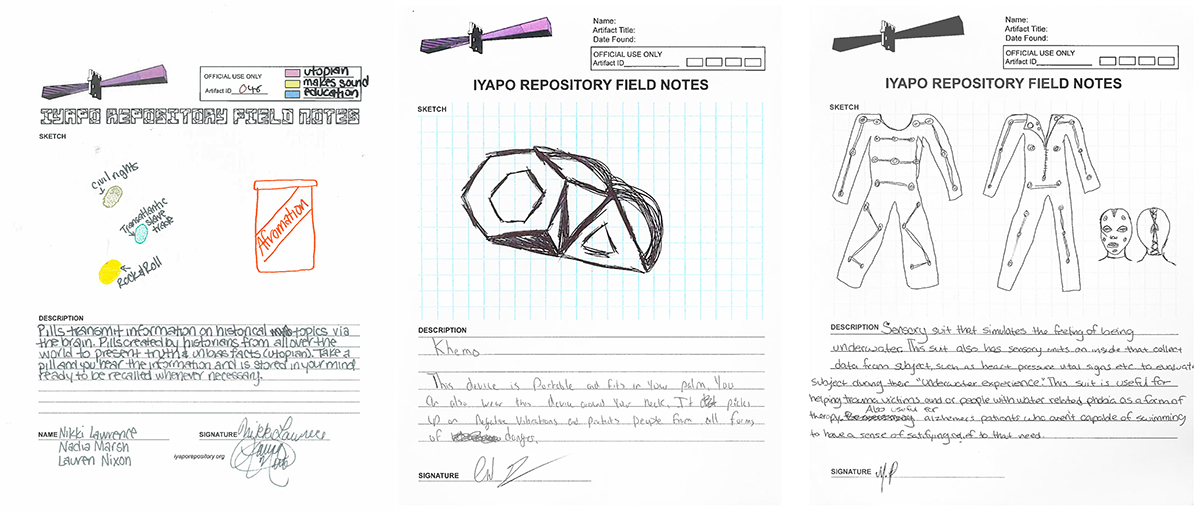 OFFICIAL USE ONLY
Artifact ID 046
utopian
makes sound
education
IYAPO REPOSITORY FIELD NOTES
SKETCH
civil rights
Transatlantic
slave
trade
Rock & Roll
Afromation
DESCRIPTION
Pills transmit information on historical topics via
the brain. Pills created by historians from all over the
world to present truth & unbias facts (utopian). Take a
pill and you hear the information and is stored in your mind
ready to be recalled whenever necessary.
NAME Nikki Lawrence
Nadia Marsh
Lauren Nixon
SIGNATURE Nikki Lawrence
iyaporepository.org
Name:
Artifact Title:
Date Found:
OFFICIAL USE ONLY
Artifact ID
IYAPO REPOSITORY FIELD NOTES
SKETCH
DESCRIPTION
Khemo
This device is Portable and fits in your palm. You
can also wear this device around your neck. It picks
up on Negative Vibrations and protects people from all forms
of danger.
SIGNATURE
Name:
Artifact Title:
Date Found:
OFFICIAL USE ONLY
Artifact ID
IYAPO REPOSITORY FIELD NOTES
SKETCH
DESCRIPTION Sensory suit that simulates the feeling of being
underwater. This suit also has sensory units on inside that collect
data from subject, such as heart pressure vital signs etc. to evaluate
subject during their "underwater experience." This suit is useful for
helping trauma victims and or people with water related phobia as a form of
therapy. Also useful for alzheimers patients who arent capable of swimming
to have a sense of satifying relief to that need.
SIGNATURE M.P